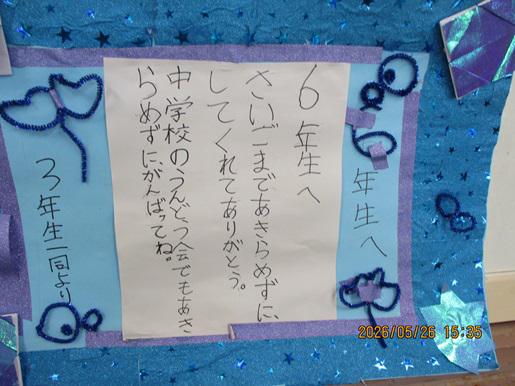 年生へ
6年生へ
さいごまであきらめずに、
してくれてありがとう。
中学校のうんどう会でもあき
らめずに、がんばってね。
3年生一同より
2026/05/26 15:35